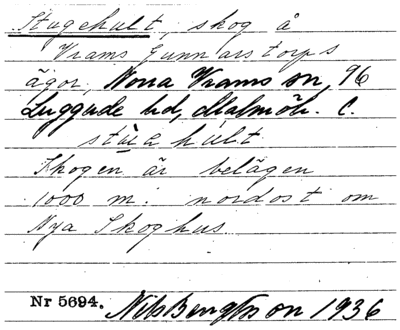 Stugehult, skog å
Vrams Gunnarstorps
ägor, Norra Vrams sn, 96
Luggude hd, Malmöh. C.
stùahult
Skogen är belägen
1000 m. nordost om
Nya Skoghus.
Nr 5694. Nils Bengtsson 1936